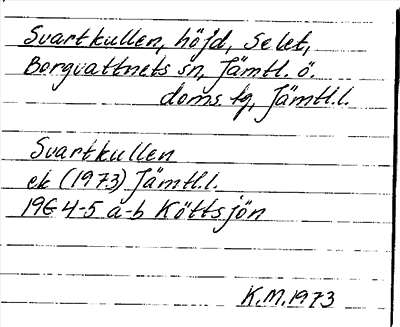 Svartkullen, höjd, Selet,
Borgvattnets sn, Jämtl. ö.
doms. tg, Jämtl.l.
Svartkullen
ek (1973) Jämtl.l.
19G 4-5 a-b Köttsjön
K.M. 1973